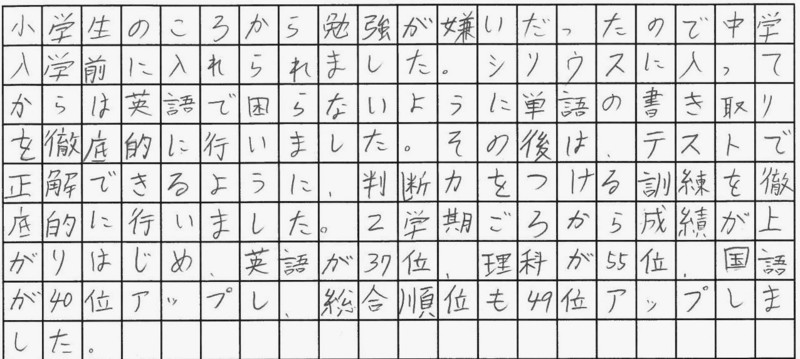 小学生のころから勉強が嫌いだったので中学
入学前に入れられました。シリウスに入って
からは英語で困らないように単語の書き取り
を徹底的に行いました。その後は、テストで
正解できるように、判断力をつける訓練を徹
底的に行いました。2学期ごろから成績が上
がりはじめ、英語が37位、理科が55位、国語
が40位アップし、総合順位も49位アップしま
した。